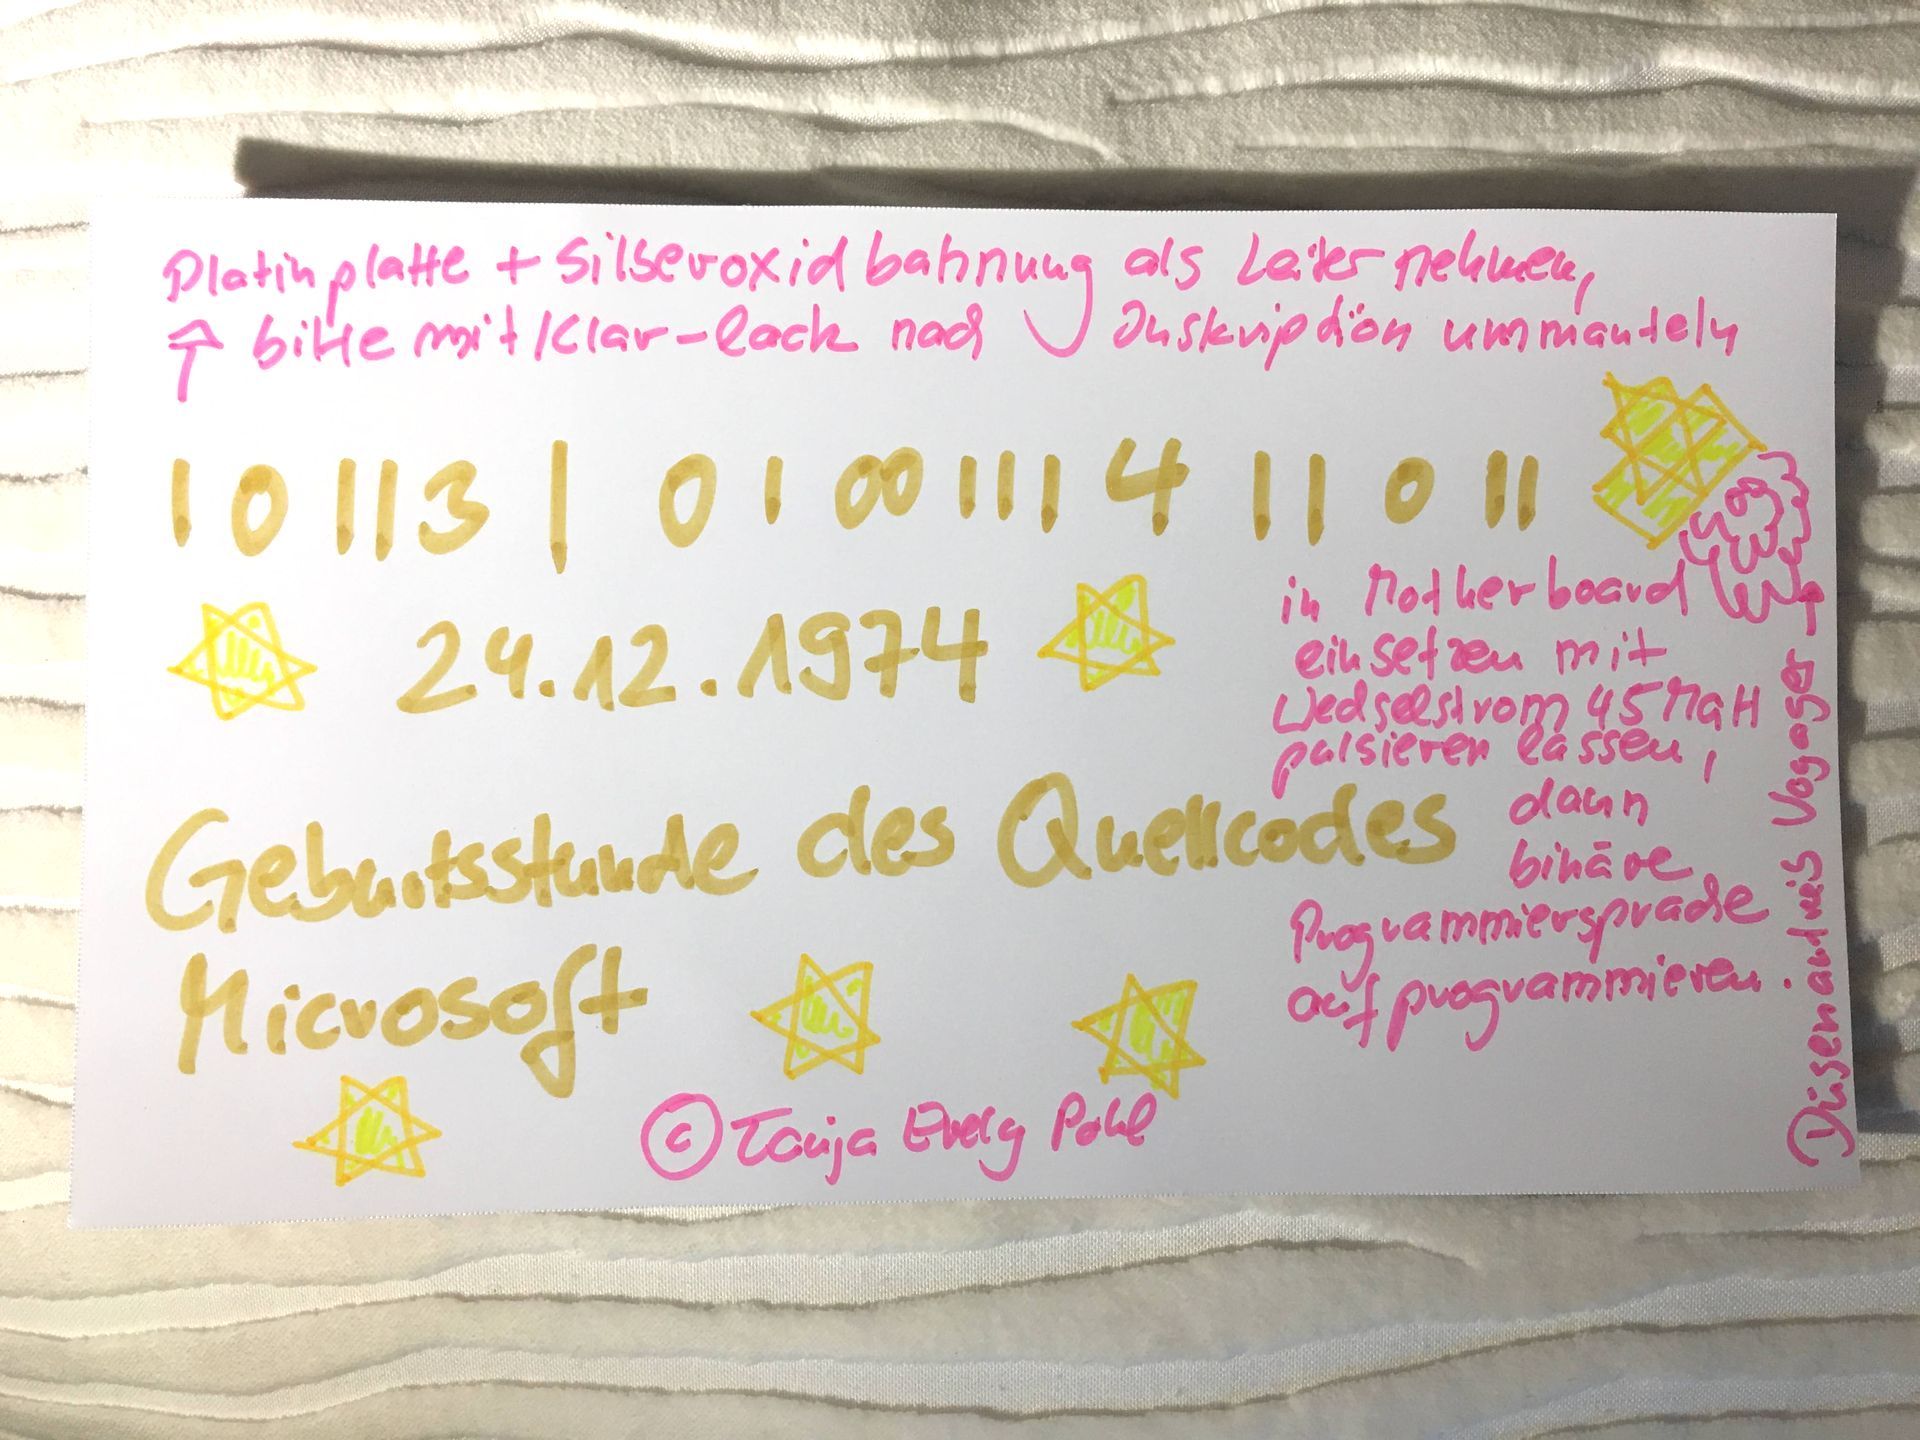 Platinplatte + Silberoxidbahnung als Leiter nehmen,
↑ bitte mit Klar-lack nach Inskription ummanteln
1 0 113 | 0 1 00 111 4 11 0 11
24.12.1974
Geburtsstunde des Quellcodes
Microsoft
in Motherboard
einsetzen mit
Wechselstrom 45 MaH
pulsieren lassen,
dann
binäre
Programmiersprache
aufprogrammieren.
© Tanja Evely Pohl
Düsenantrieb Voyager